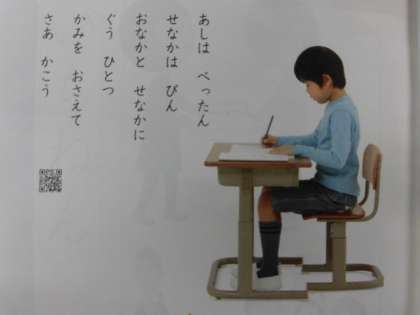 あしは　ぺったん
せなかは　ぴん
おなかと　せなかに
ぐう　ひとつ
かみを　おさえて
さあ　かこう